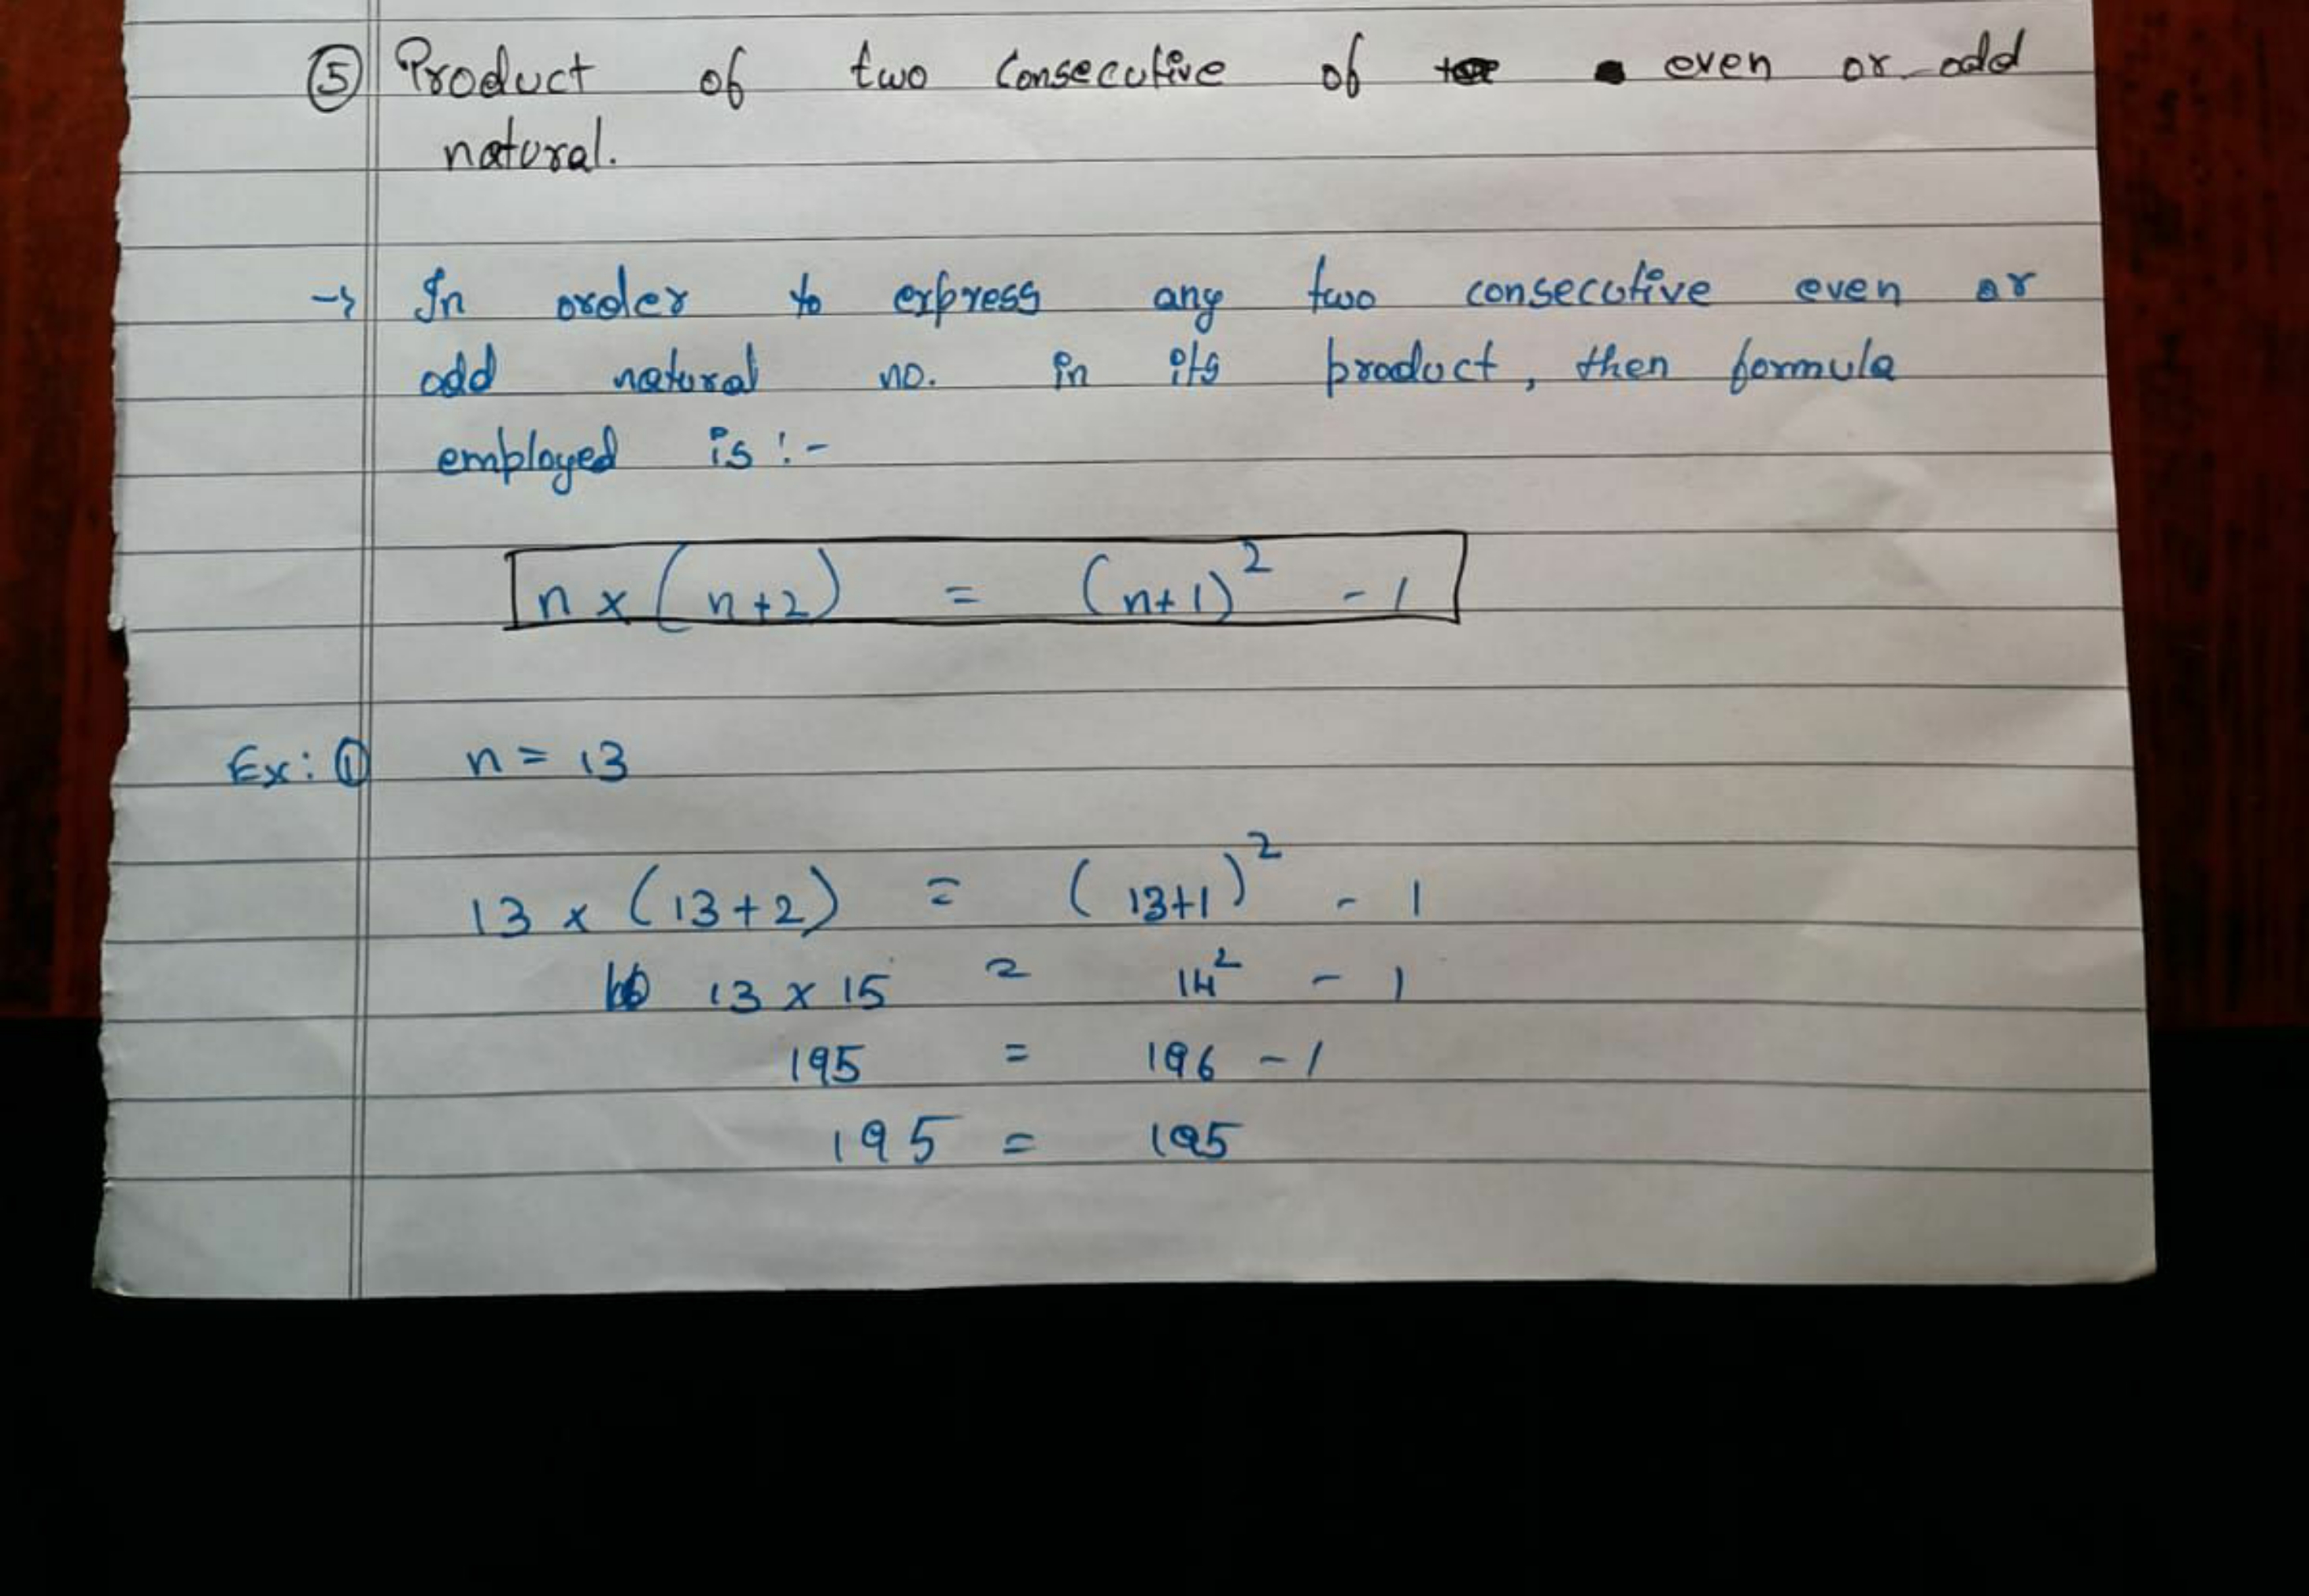 ⑤ Product of two Consecutive of even or odd
natural.
→ In order to express any two consecutive even or
odd natural no. in its product, then formula
employed is :-
n × (n+2) = (n+1)² - 1
Ex: ① n = 13
13 × (13+2) = (13+1)² - 1
13 × 15 = 14² - 1
195 = 196 - 1
195 = 195